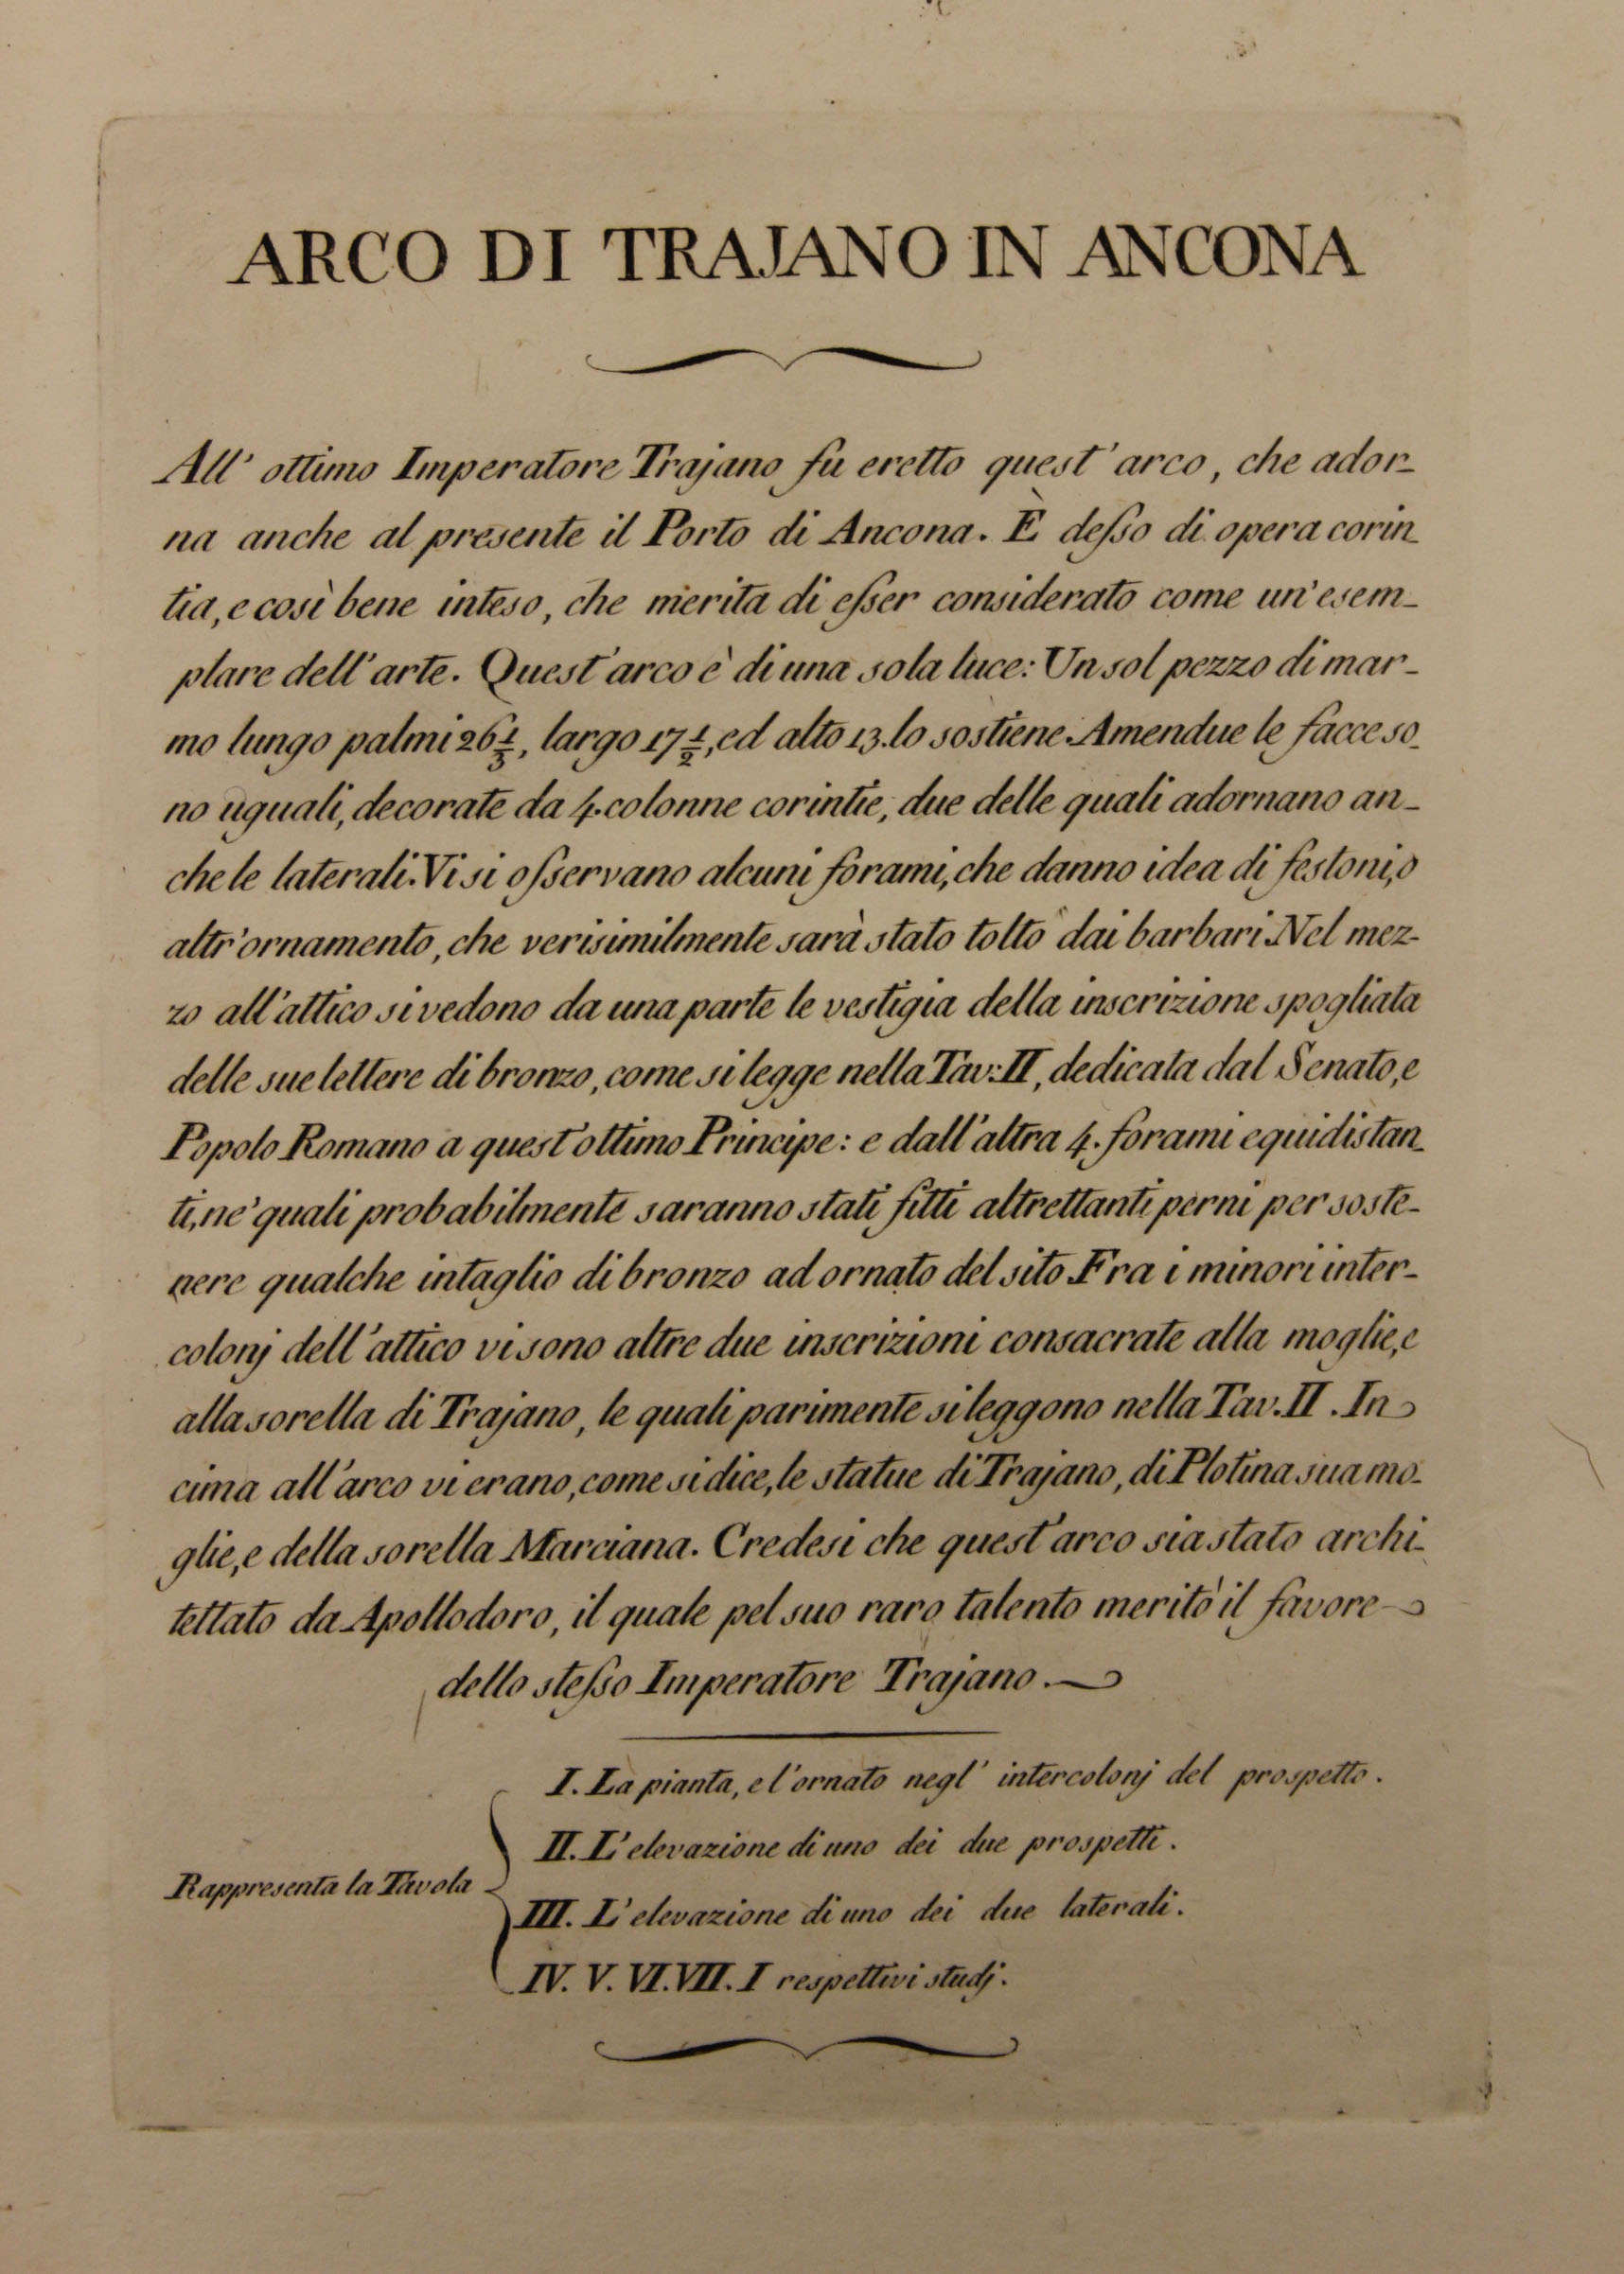 ARCO DI TRAJANO IN ANCONA
All' ottimo Imperatore Trajano fu eretto quest' arco, che ador-
na anche al presente il Porto di Ancona. È deſso di opera corin-
tia, e così bene inteso, che merita di eſser considerato come un' esem-
plare dell' arte. Quest' arco è di una sola luce: Un sol pezzo di mar-
mo lungo palmi 26 1/3, largo 17 1/2, ed alto 13. lo sostiene. Amendue le facce so-
no uguali, decorate da 4. colonne corintie, due delle quali adornano an-
che le laterali. Vi si oſservano alcuni forami, che danno idea di festoni, o
altr' ornamento, che verisimilmente sarà stato tolto dai barbari. Nel mez-
zo all' attico si vedono da una parte le vestigia della inscrizione spogliata
delle sue lettere di bronzo, come si legge nella Tav: II, dedicata dal Senato, e
Popolo Romano a quest' ottimo Principe: e dall' altra 4. forami equidistan-
ti, ne' quali probabilmente saranno stati fitti altrettanti perni per soste-
nere qualche intaglio di bronzo ad ornato del sito. Fra i minori inter-
colonj dell' attico vi sono altre due inscrizioni consacrate alla moglie, e
alla sorella di Trajano, le quali parimente si leggono nella Tav. II. In
cima all' arco vi erano, come si dice, le statue di Trajano, di Plotina sua mo-
glie, e della sorella Marciana. Credesi che quest' arco sia stato archi-
tettato da Apollodoro, il quale pel suo raro talento meritò il favore
dello steſso Imperatore Trajano.
Rappresenta la Tavola
I. La pianta, e l' ornato negl' intercolonj del prospetto.
II. L' elevazione di uno dei due prospetti.
III. L' elevazione di uno dei due laterali.
IV. V. VI. VII. I respettivi studj.